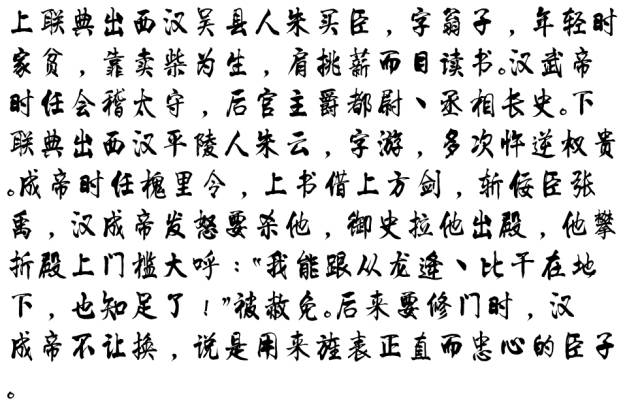 上联典出西汉吴县人朱买臣，字翁子，年轻时
家贫，靠卖柴为生，肩挑薪而目读书。汉武帝
时任会稽太守，后官主爵都尉、丞相长史。下
联典出西汉平陵人朱云，字游，多次忤逆权贵
。成帝时任槐里令，上书借上方剑，斩佞臣张
禹，汉成帝发怒要杀他，御史拉他出殿，他攀
折殿上门槛大呼："我能跟从龙逄、比干在地
下，也知足了！"被赦免。后来要修门时，汉
成帝不让换，说是用来旌表正直而忠心的臣子
。